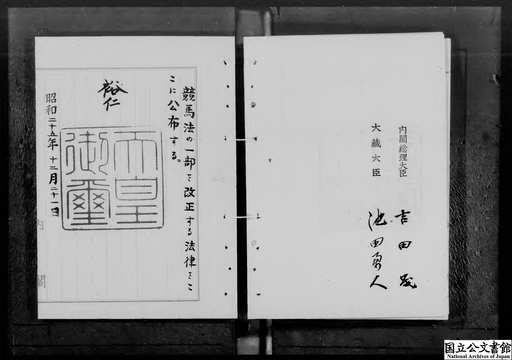 競馬法の一部を改正する法律をこ
こに公布する。
裕仁
天皇
御璽
昭和二十五年十二月二十一日
内閣
内閣総理大臣 吉田茂
大蔵大臣 池田勇人
国立公文書館
National Archives of Japan